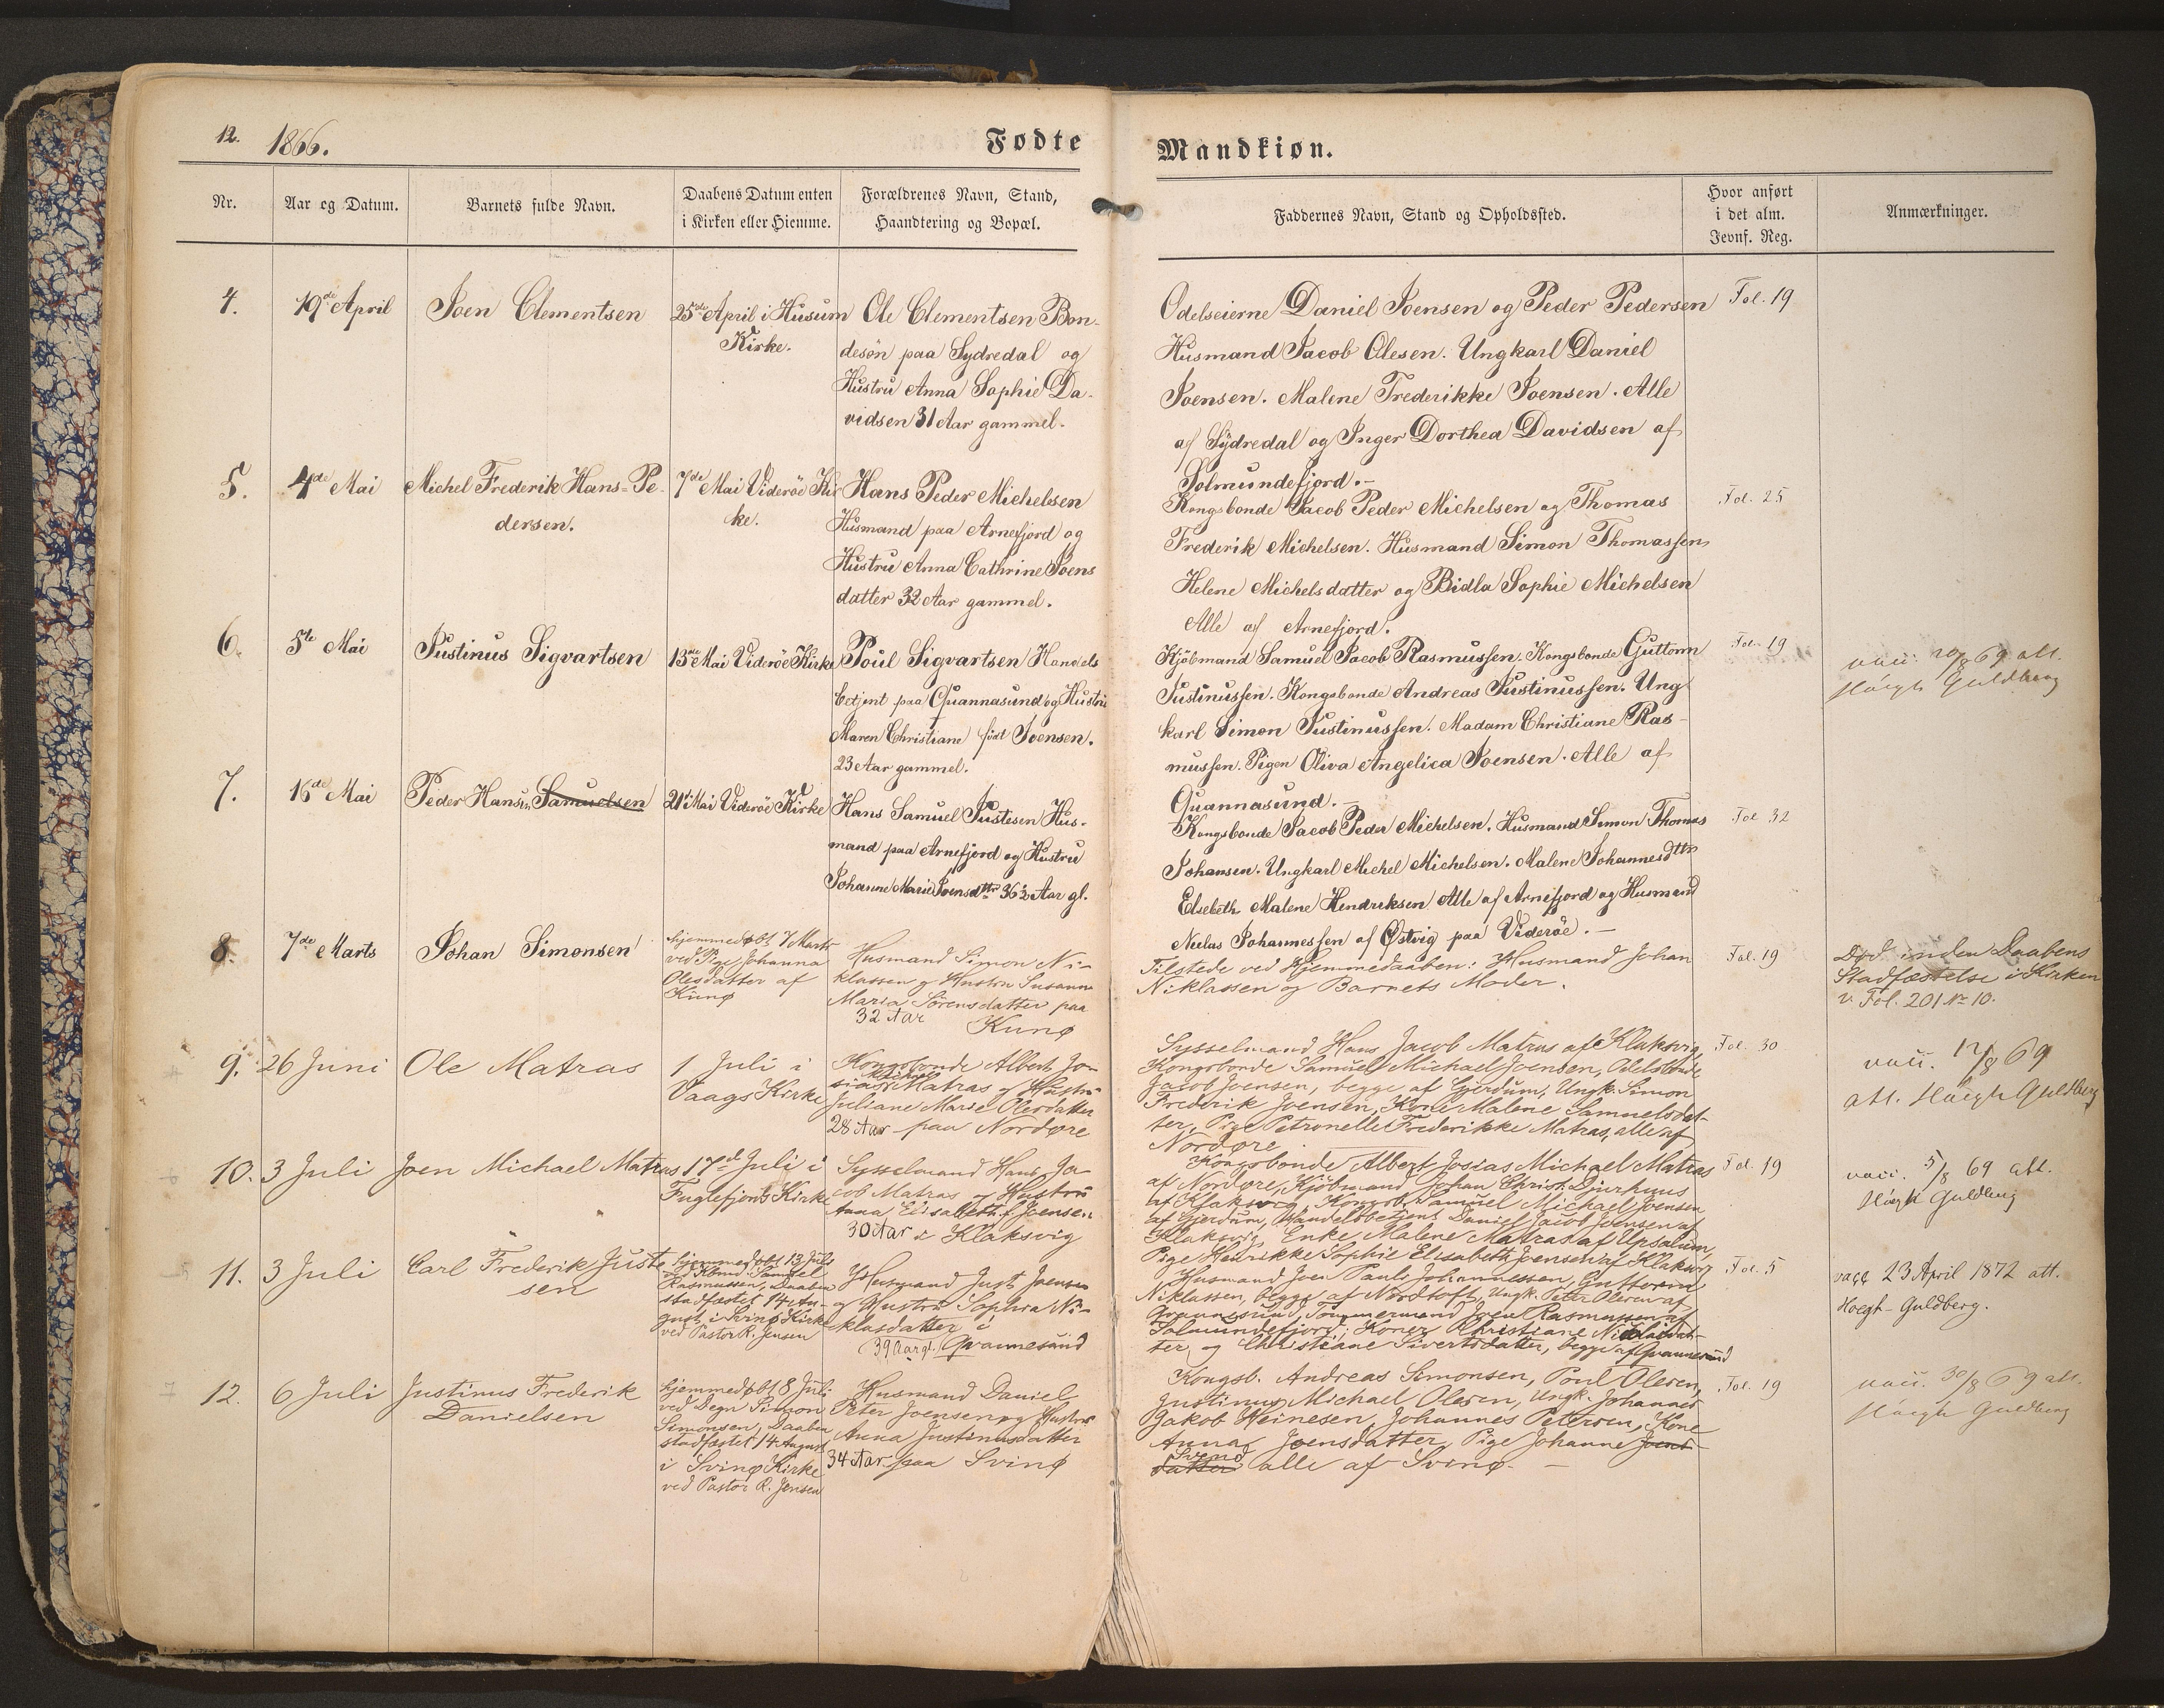 12. 1866.
Fødte
Mandkiøn.
Nr.
Aar og Datum.
Barnets fulde Navn.
Daabens Datum enten
i Kirken eller Hiemme.
Forældrenes Navn, Stand,
Haandtering og Bopæl.
Faddernes Navn, Stand og Opholdssted.
Hvor anført
i det alm.
Jevnf. Reg.
Anmærkninger.
4.
19de April
Joen Clementsen
25de April i Husum
Kirke.
Ole Clementsen Bon-
desøn paa Sydredal og
Hustru Anna Sophie Da-
vidsen 31 Aar gammel.
Odelseierne Daniel Joensen og Peder Pedersen
Husmand Jacob Olesen. Ungkarl Daniel
Joensen. Malene Frederikke Joensen. Alle
af Sÿdredal og Inger Dorthea Davidsen af
Solmundefjord.-
Fol. 19
5.
4de Mai
Michel Frederik Hans=Pe-
dersen.
7de Mai Viderøe Kir
ke.
Hans Peder Michelsen
Husmand paa Arnefjord og
Hustru Anna Cathrine Joens
datter 32 Aar gammel.
Kongsbonde Jacob Peder Michelsen og Thomas
Frederik Michelsen. Husmand Simon Thomassen
Helene Michelsdatter og Bidla Sophie Michelsen
Alle af Arnefjord.
Fol. 25
6.
5te Mai
Justinus Sigvartsen
13de Mai Viderøe Kirke
Poul Sigvartsen Handels
betjent paa Quannasund og Hustru
Maren Christiane født Joensen.
23 Aar gammel.
Kjöbmand Samuel Jacob Rasmussen. Kongsbonde Guttorm
Justinussen. Kongsbonde Andreas Justinussen. Ung
karl Simon Justinussen. Madam Christiane Ras-
mussen. Pigen Oliva Angelica Joensen. Alle af
Quannasund.-
Fol. 19
vacc. 20/8 69 att.
Høegh Guldberg
7.
16de Mai
Peder Hansen Samuelsen
21de Mai Viderøe Kirke
Hans Samuel Justesen Hus-
mand paa Arnefjord og Hustru
Johanne Marie Joensdttr 36½ Aar gl.
Kongsbonde Jacob Peder Michelsen. Husmand Simon Thomas
Johansen. Ungkarl Michel Michelsen. Malene Johannesdttr
Elsebeth Malene Hendriksen Alle af Arnefjord og Husmand
Niclas Johannessen af Østvig paa Viderøe.-
Fol 32
8.
7de Marts
Johan Simonsen
hjemmedøbt 7 Marts
ved Pige Johanna
Olesdatter af
Kunø
Husmand Simon Ni-
klassen og Hustru Susanne
Maria Sørensdatter paa
32 Aar Kunø
Tilstede ved Hjemmedaaben: Husmand Johan
Niklassen og Barnets Moder.
Fol. 19
Død inden Daabens
Stadfæstelse i Kirken
v. Fol. 201 № 10.
9.
26 Juni
Ole Matras
1 Juli i
Vaags Kirke
Kongsbonde Albert Jo-
sias Michael Matras og Hustru
Juliane Marie Olesdatter
28 Aar paa Nordøre
Sysselmand Hans Jacob Matras af Klaksvig,
Kongsbonde Samuel Michael Joensen, Odelsbonde
Jacob Joensen, begge af Gjerdum, Ungk. Simon
Frederik Joensen, Kone Malene Samuelsdat-
ter, Pige Petronelle Frederikke Matras, alle af
Nordøre
Fol. 30
vacc. 17/8 69
att. Høegh Guldberg
10.
3 Juli
Joen Michael Matras
17de Juli i
Fuglefjords Kirke
Sysselmand Hans Ja-
cob Matras og Hustru
Anna Elisabeth f. Joensen
30 Aar i Klaksvig
Kongsbonde Albert Josias Michael Matras
af Nordøre, Kjöbmand Johan Christ. Djurhuus
af Klaksvig, Kongsb. Samuel Michael Joensen
af Gjerdum, Handelsbetjent Daniel Jacob Joensen af
Klaksvig, Enke Malene Matras af Upsalum,
Pige Henrikke Sophie Elisabeth Joensen af Klaksvig
Fol. 19
vacc. 5/8 69 att.
Høegh Guldberg
11.
3 Juli
Carl Frederik Juste
sen
hjemmedøbt 13 Juli
ved Kbmd. Samuel
Rasmussen, Daaben
stadfæstet 14 Au-
gust i Svinø Kirke
ved Pastor R. Jensen
Husmand Just Joensen
og Hustru Sophia Ni-
klasdatter i
39 Aar gl. Qvannesund
Husmand Joen Pauli Johannessen, Guttorm
Niklassen, begge af Nordtoft, Ungk. Peter Olesen af
Qvannesund, Tømmermand Joen Rasmussen af
Solmundefjord, Koner Christiane Nicklasdat-
ter og Christiane Sivertsdatter, begge af Qvannesund
Fol. 5
vacc 23 April 1872 att.
Hoegh-Guldberg.
12.
6 Juli
Justinus Frederik
Danielsen
hjemmedøbt 8 Juli
ved Degn Simon
Simonsen, Daaben
stadfæstet 14 August
i Svinø Kirke
ved Pastor R. Jensen
Husmand Daniel
Peter Joensen og Hustru
Anna Justinusdatter
34 Aar paa Svinø
Kongsb. Andreas Simonsen, Poul Olesen,
Justinus Michael Olesen, Ungk. Johannes
Jakob Heinesen, Johannes Petersen, Kone
Anna Joensdatter, Pige Johanne Joens-
datter Svend alle af Svinø.-
Fol. 19
vacc. 30/8 69 att.
Høegh Guldberg